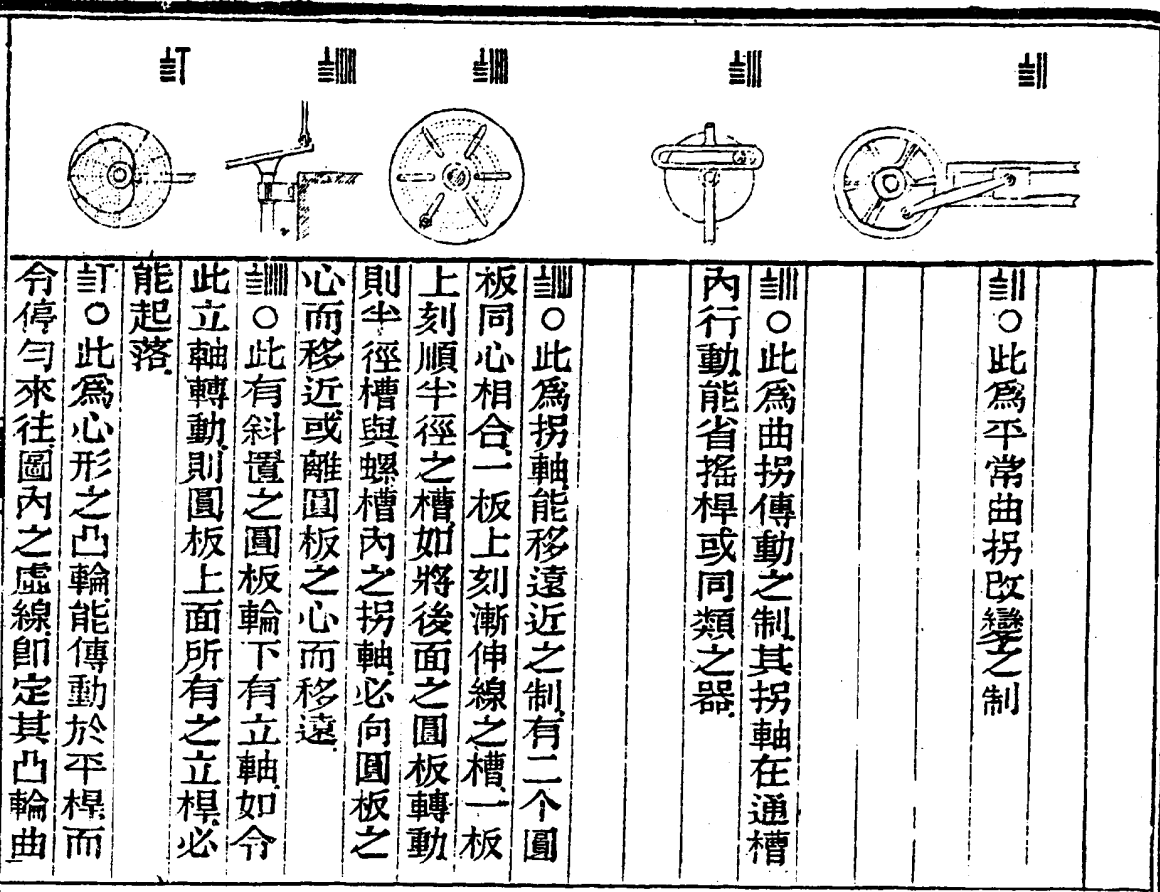 𝍱𝍡
𝍱𝍢
𝍱𝍣
𝍱𝍤
𝍱𝍥
𝍱𝍡○此爲平常曲拐改變之制
𝍱𝍢○此爲曲拐傳動之制、其拐軸在通槽
內行動、能省搖桿或同類之器、
𝍱𝍣○此爲拐軸、能移遠近之制、有二个圓
板同心相合、一板上刻漸伸線之槽、一板
上刻順半徑之槽、如將後面之圓板轉動
則半徑槽與螺槽內之拐軸、必向圓板之
心而移近、或離圓板之心而移遠、
𝍱𝍤○此有斜置之圓板輪下有立軸、如令
此立軸轉動、則圓板上面所有之立桿、必
能起落、
𝍱𝍥○此爲心形之凸輪能傳動於平桿、而
令停勻來往、圖內之虛線、卽定其凸輪曲